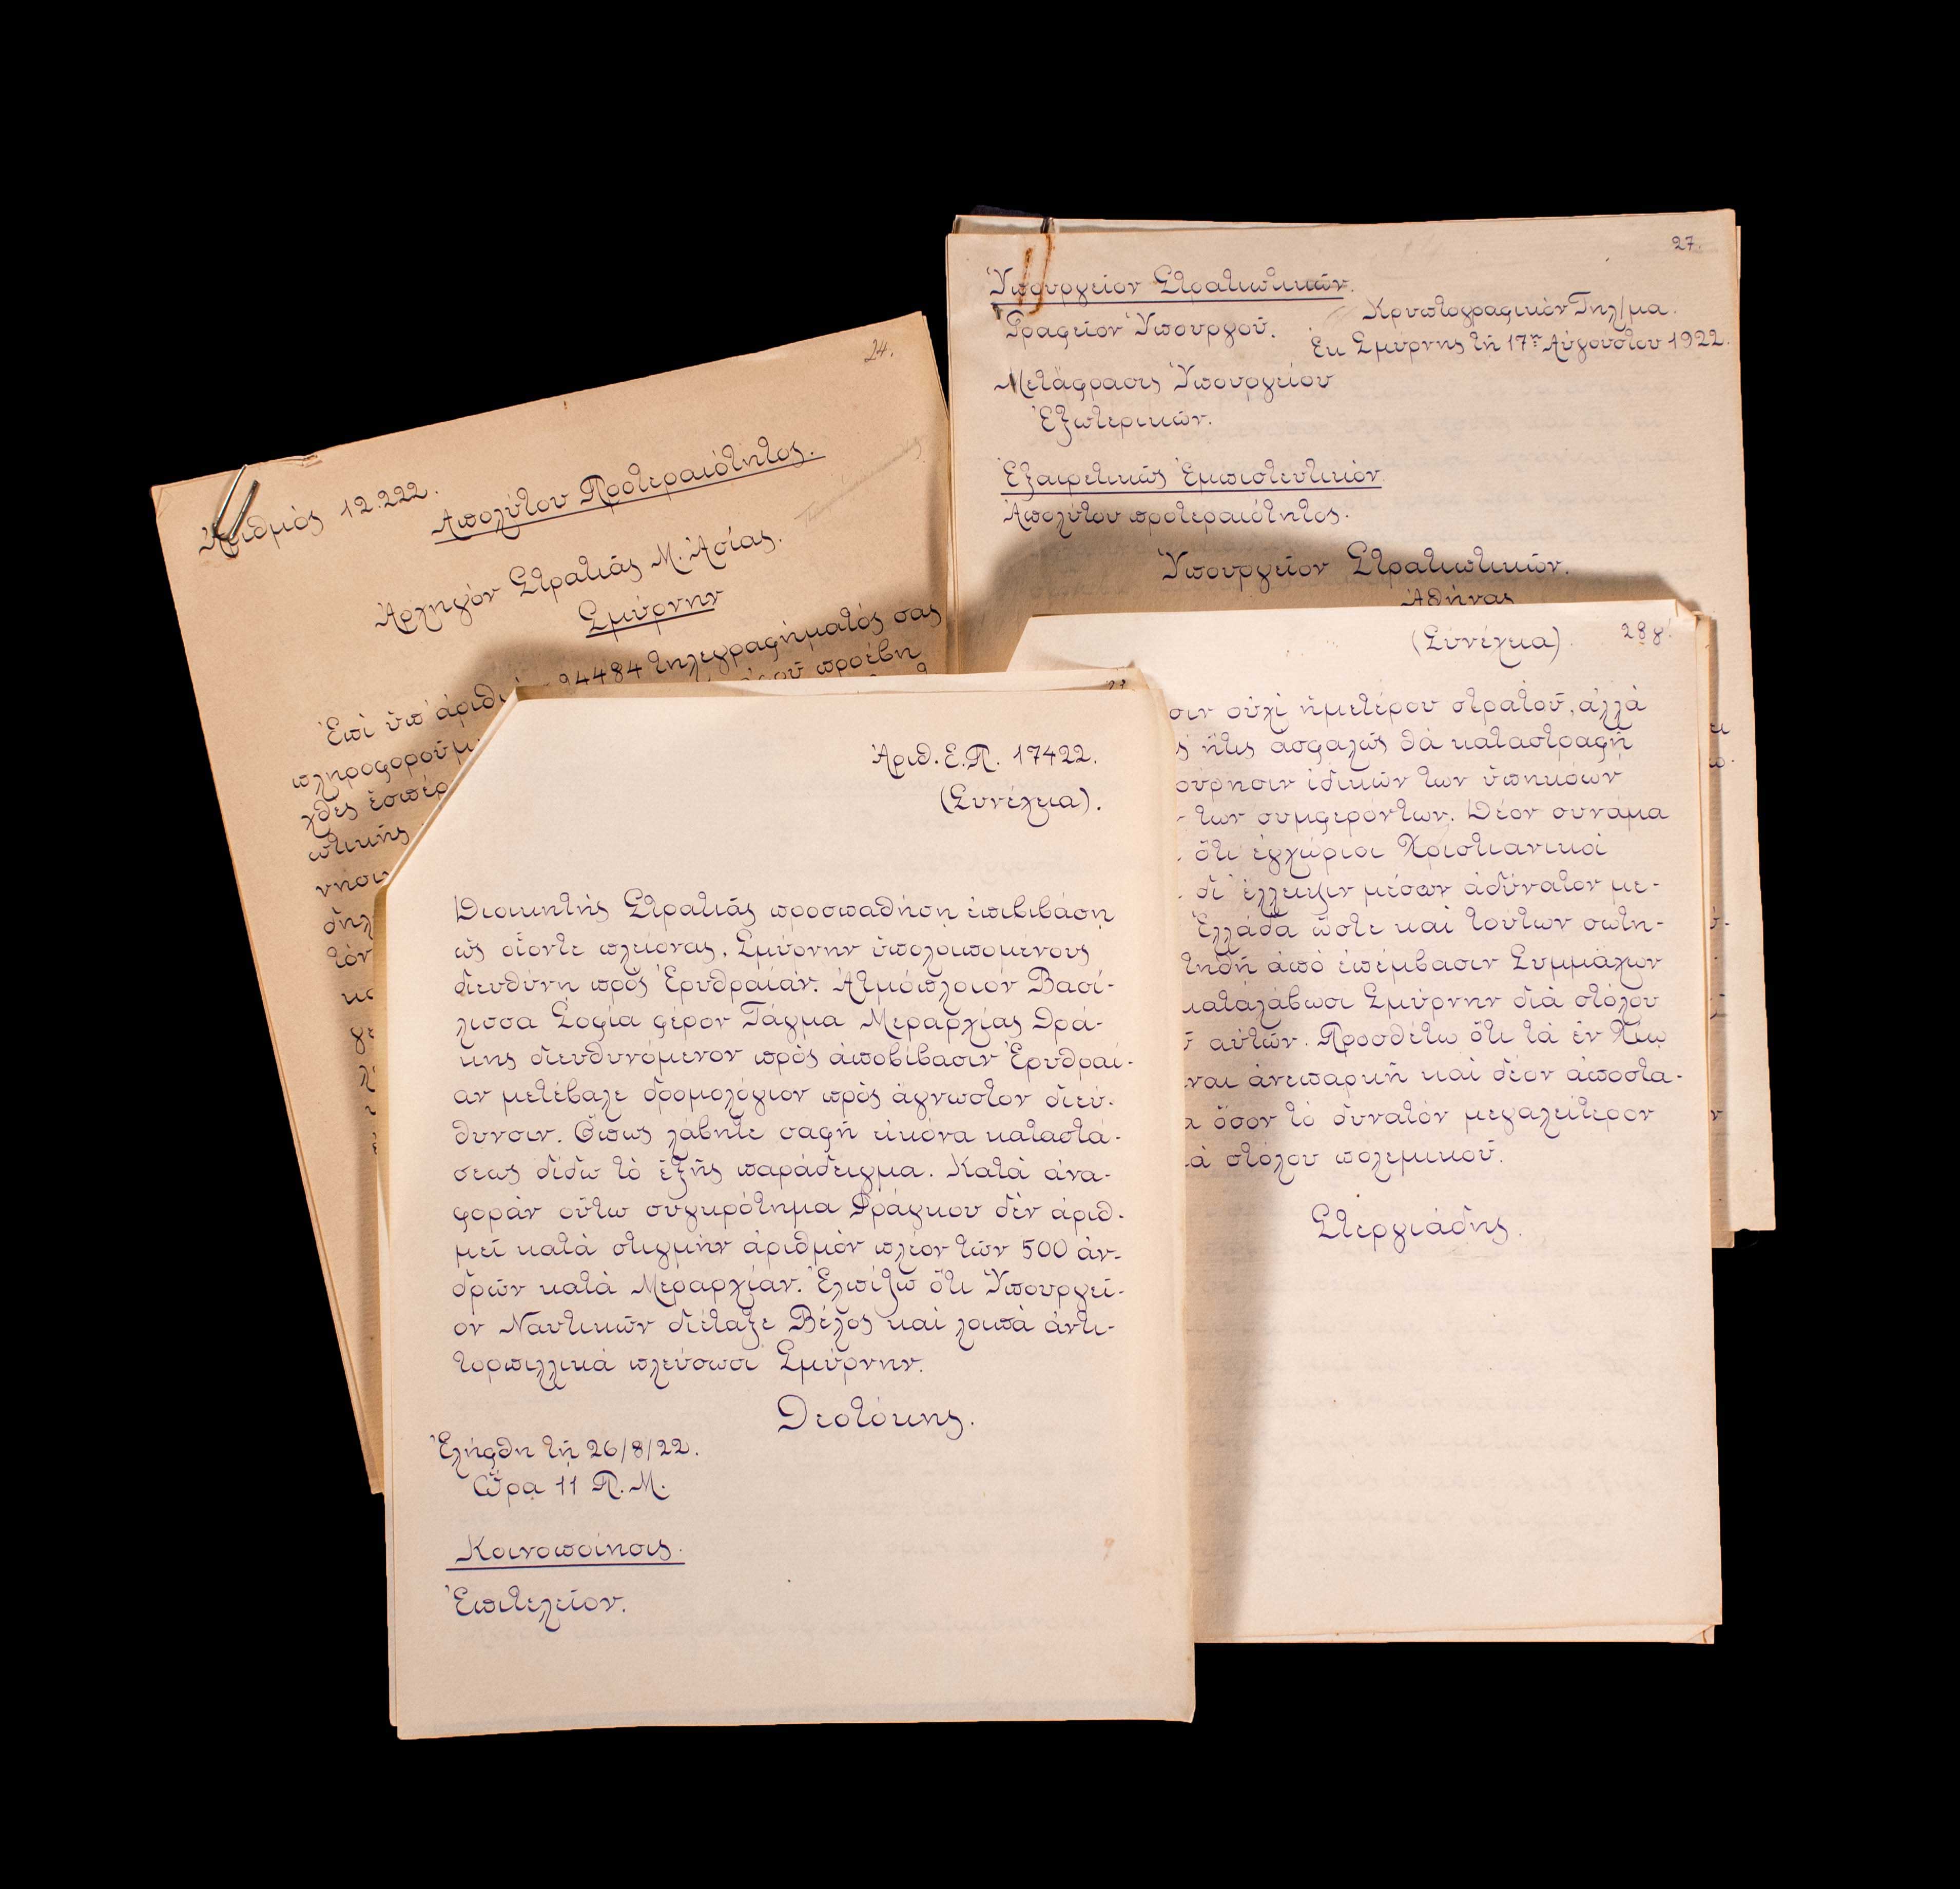 24.
Ἀριθμὸς 12.222.
Ἀπολύτου Προτεραιότητος.
Ἀρχηγὸν Στρατιᾶς Μ. Ἀσίας.
Σμύρνην
Ἐπὶ ὑπ' ἀριθ 94484 τηλεγραφήματός σας
πληροφοροῦμ προέβη
χθὲς ἑσπέρ
ωτικῆς
νησιν
δηλ
τὸν
27.
Ὑπουργεῖον Στρατιωτικῶν.
Γραφεῖον Ὑπουργοῦ.
Κρυπτογραφικὸν Τηλ/μα.
Ἐκ Σμύρνης τῇ 17ῃ Αὐγούστου 1922.
Μετάφρασις Ὑπουργείου
Ἐξωτερικῶν.
Ἐξαιρετικῶς Ἐμπιστευτικόν
Ἀπολύτου προτεραιότητος.
Ὑπουργεῖον Στρατιωτικῶν.
Ἀθήνας
(Συνέχεια). 28γ'
σιν οὐχὶ ἡμετέρου στρατοῦ, ἀλλὰ
ς ἥτις ἀσφαλῶς θὰ καταστραφῇ
ούρησιν ἰδικῶν των ὑπηκόων
των συμφερόντων. Δέον συνάμα
ὅτι ἐγχώριοι Χριστιανικοὶ
δι' ἔλλειψιν μέσων ἀδύνατον με-
Ἑλλάδα ὥστε καὶ τούτων σωτη-
τηθῇ ἀπὸ ἐπέμβασιν Συμμάχων
καταλάβωσι Σμύρνην διὰ στόλου
αὐτῶν. Προσθέτω ὅτι τὰ ἐν Χίῳ
ναι ἀνεπαρκῆ καὶ δέον ἀποστα-
α ὅσον τὸ δυνατὸν μεγαλείτερον
ιὰ στόλου πολεμικοῦ.
Στεργιάδης.
Ἀριθ. Ε.Π. 17422.
(Συνέχεια).
Διοικητὴς Στρατιᾶς προσπαθήσῃ ἐπιβιβάσῃ
ὡς οἷόντε πλείονας, Σμύρνην ὑπολοιπομένους
διευθύνῃ πρὸς Ἐρυθραίαν. Ἀτμόπλοιον Βασί-
λισσα Σοφία φέρον Τάγμα Μεραρχίας Θρά-
κης διευθυνόμενον πρὸς ἀποβίβασιν Ἐρυθραί-
αν μετέβαλε δρομολόγιον πρὸς ἄγνωστον διεύ-
θυνσιν. Ὅπως λάβητε σαφῆ εἰκόνα καταστά-
σεως δίδω τὸ ἑξῆς παράδειγμα. Κατὰ ἀνα-
φορὰν οὕτω συγκρότημα Φράγκου δὲν ἀριθ-
μεῖ κατὰ στιγμὴν ἀριθμὸν πλέον τῶν 500 ἀν-
δρῶν κατὰ Μεραρχίαν. Ἐλπίζω ὅτι Ὑπουργεῖ-
ον Ναυτικῶν διέταξε Βέλος καὶ λοιπὰ ἀντι-
τορπιλλικὰ πλεύσωσι Σμύρνην.
Θεοτόκης.
Ἐλήφθη τῇ 26/8/22.
Ὥρα 11 Π.Μ.
Κοινοποίησις.
Ἐπιτελεῖον.